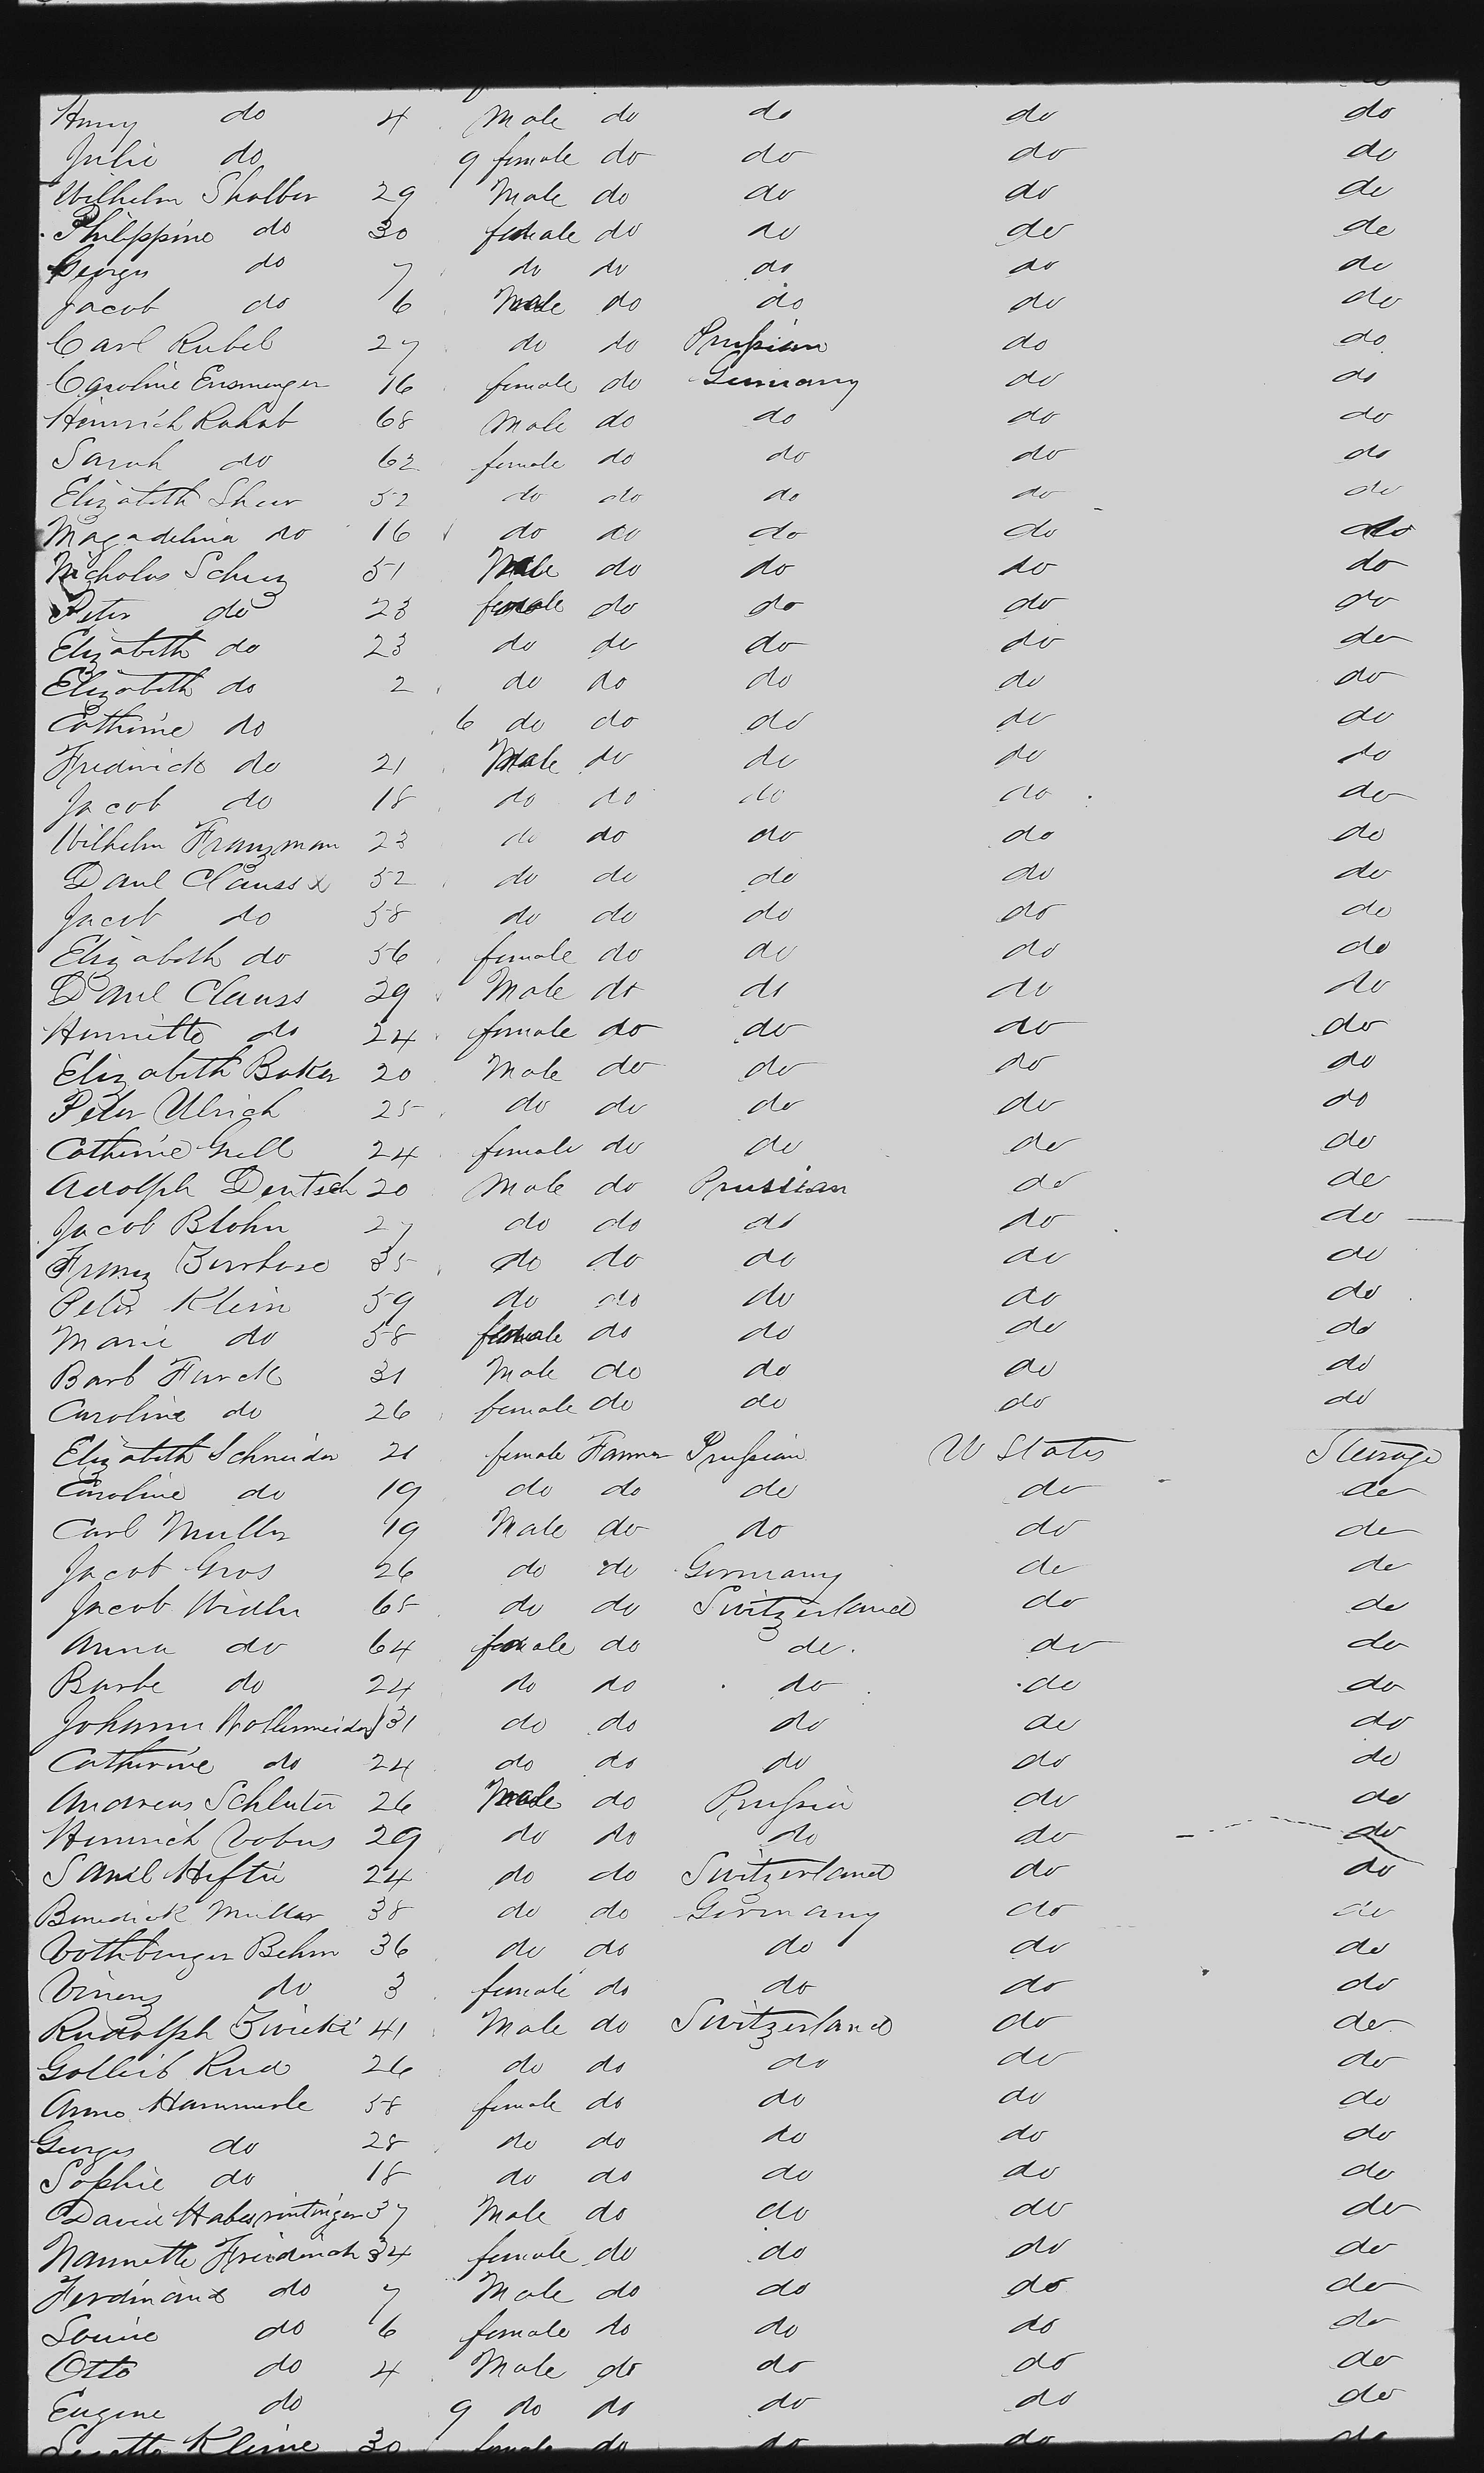 Henry do 4 Male do do do do
Julie do 9 female do do do do
Wilhelm Shalber 29 Male do do do do
Philippine do 30 female do do do do
Georges do 7 do do do do do
Jacob do 6 Male do do do do
Carl Rubel 27 do do Prussian do do
Caroline Ensmenger 16 female do Germany do do
Heinrich Rahab 68 Male do do do do
Sarah do 62 female do do do do
Elizabeth Sheer 52 do do do do do
Magadelina do 16 do do do do do
Nicholas Scherz 51 Male do do do do
Peter do 23 female do do do do
Elizabeth do 23 do do do do do
Elizabeth do 2 do do do do do
Catherine do 6 do do do do do
Fredrick do 21 Male do do do do
Jacob do 18 do do do do do
Wilhelm Franzman 23 do do do do do
Danl Clauss x 52 do do do do do
Jacob do 58 do do do do do
Elizabeth do 56 female do do do do
Danl Clauss 29 Male do do do do
Henriette do 24 female do do do do
Elizabeth Baker 20 Male do do do do
Peter Ulrich 25 do do do do do
Catherine Grell 24 female do do do do
Adolph Deutsch 20 Male do Prussian do do
Jacob Blohn 27 do do do do do
Franz 35 do do do do do
Peter Klein 59 do do do do do
Marie do 58 female do do do do
Barb Furck 31 Male do do do do
Caroline do 26 female do do do do
Elizabeth Schneider 21 female Farmer Prussian U States Steerage
Caroline do 19 do do do do do
Carl Muller 19 Male do do do do
Jacob Gros 26 do do Germany do do
Jacob Widler 65 do do Switzerland do do
Anna do 64 female do do do do
Barbe do 24 do do do do do
Johann Wollenweider 31 do do do do do
Catherine do 24 do do do do do
Andreas Schluter 26 Male do Prussia do do
Heinrich Vobus 29 do do do do do
Saml Heftie 24 do do Switzerland do do
Benedick Muller 38 do do Germany do do
Vothburger Behm 36 do do do do do
Vinenz do 3 female do do do do
Rudolph Zwicki 41 Male do Switzerland do do
Gotlieb Rud 26 do do do do do
Anna Hammerle 58 female do do do do
Georges do 28 do do do do do
Sophie do 18 do do do do do
David 37 Male do do do do
Nannette Freidrich 34 female do do do do
Ferdinand do 7 Male do do do do
Louise do 6 female do do do do
Otto do 4 Male do do do do
Eugene do 9 do do do do do
Kleine 30 female do do do do